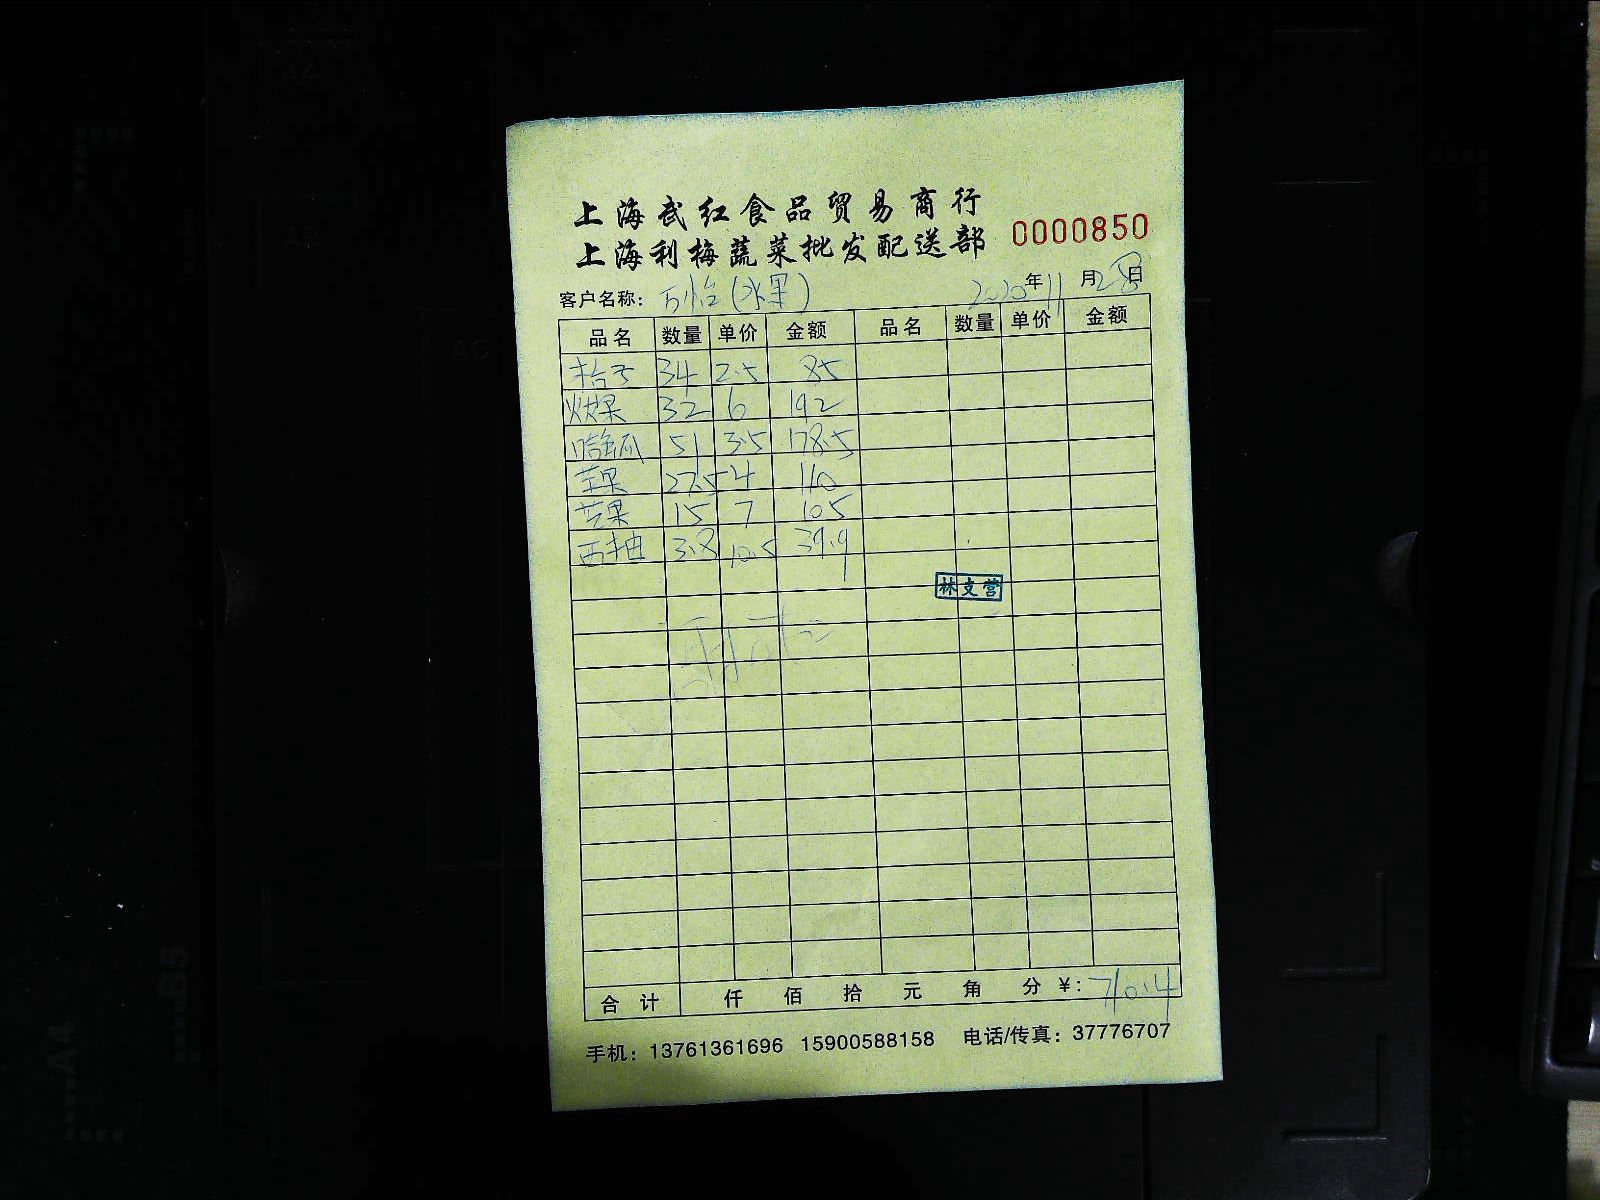 上海武红食品贸易商行
上海利梅蔬菜批发配送部 0000850
客户名称: 万怡(水果) 2020年11月28日
品名 数量 单价 金额 品名 数量 单价 金额
桔子 34 2.5 85
火龙果 32 6 192
哈蜜瓜 51 3.5 178.5
苹果 27.5 4 110
芒果 15 7 105
西柚 3.8 10.5 39.9
林支营
合计 仟 佰 拾 元 角 分 ¥: 710.4
手机: 13761361696 15900588158 电话/传真: 37776707
A4
A5
B5
A4